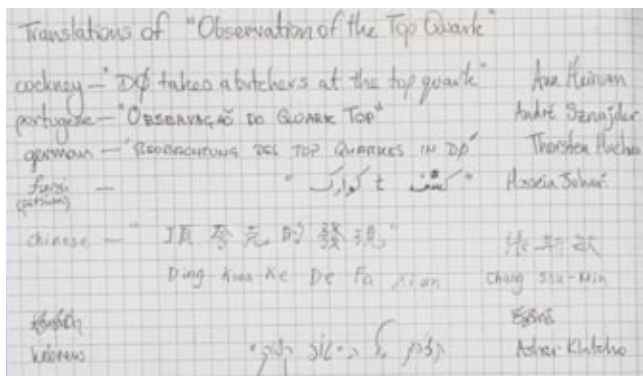 Translations of "Observation of the Top Quark"
cockney — "DØ takes a butchers at the top quark" Ann Heinson
portugese — "OBSERVAÇÃO DO QUARK TOP" André Sznajder
german — "BEOBACHTUNG DES TOP QUARKES IN DØ" Thorsten
farsi — "کشف t کوارک" Hossein
(persian)
chinese — "頂夸克的發現"
Ding Kua Ke De Fa Xian Chang Ssu-Min
hebrew